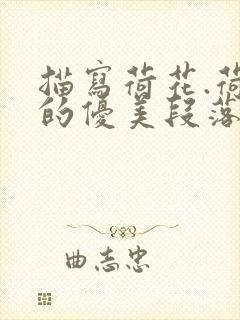 描寫荷花.荷
的優美段落
曲志忠